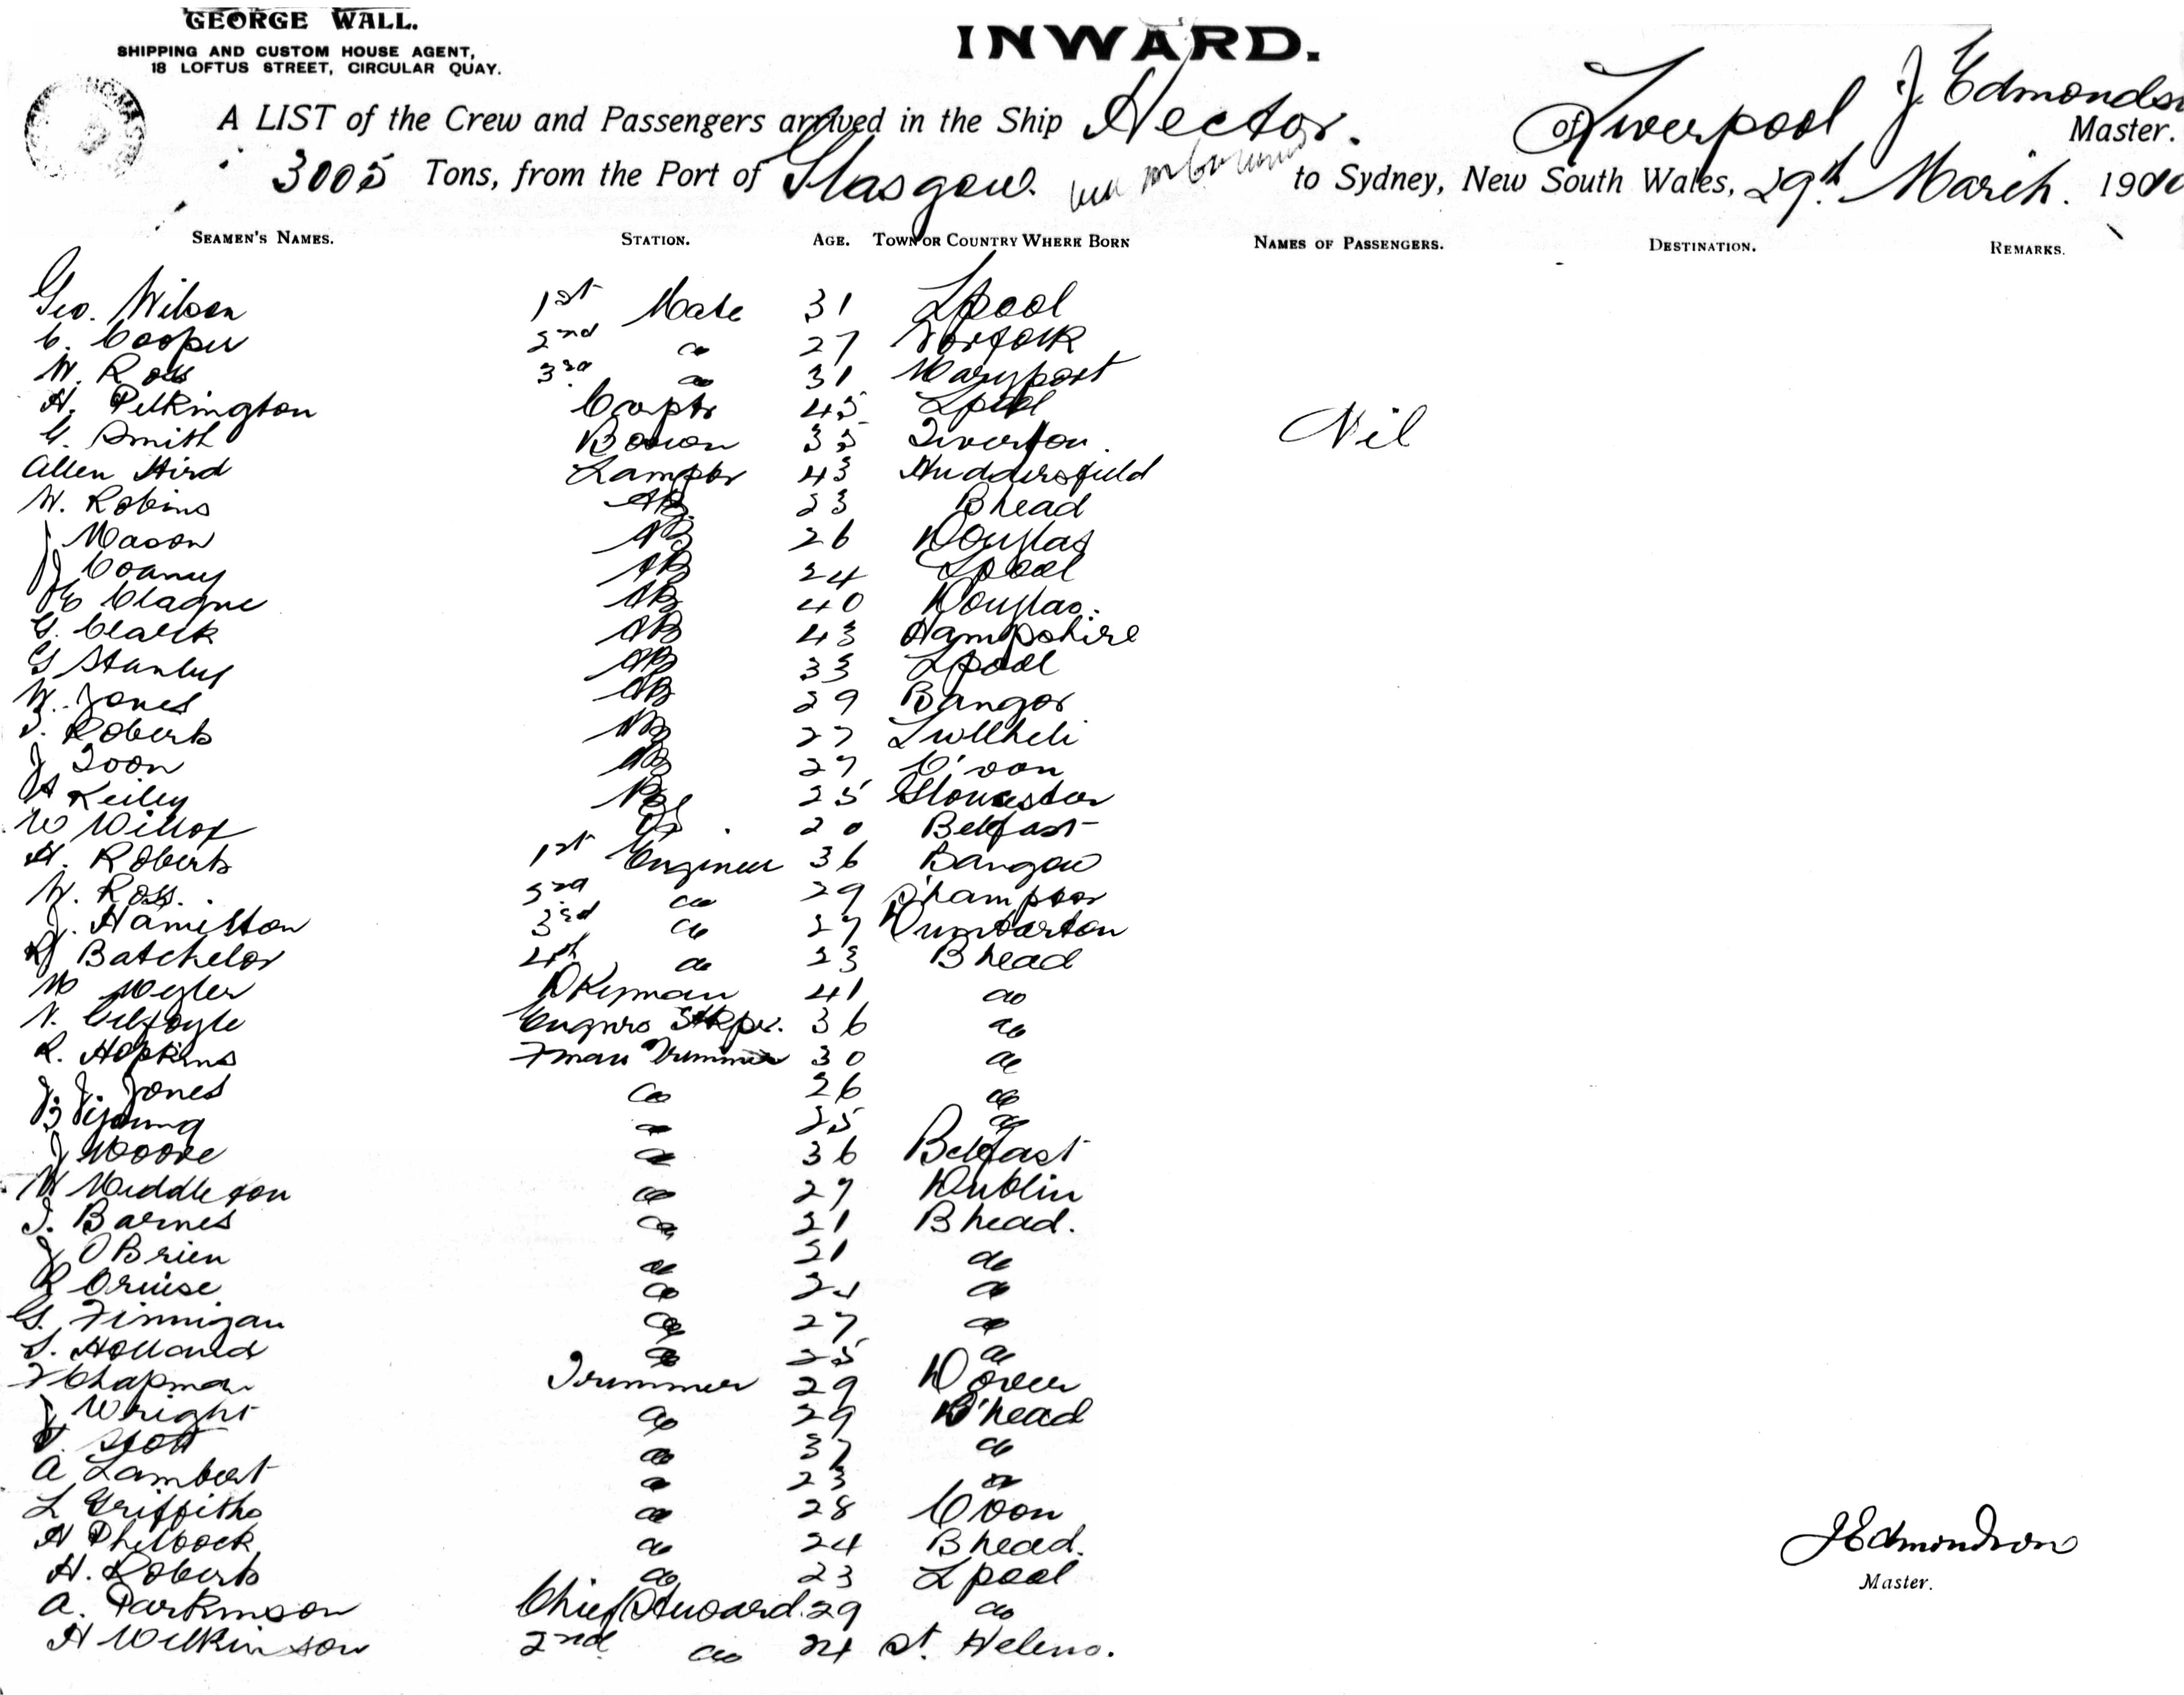 GEORGE WALL.
SHIPPING AND CUSTOM HOUSE AGENT,
18 LOFTUS STREET, CIRCULAR QUAY.
INWARD.
A LIST of the Crew and Passengers arrived in the Ship Hector. of Liverpool J. Edmondson Master.
3005 Tons, from the Port of Glasgow. to Sydney, New South Wales, 29th March. 190
SEAMEN'S NAMES. STATION. AGE. TOWN OR COUNTRY WHERE BORN NAMES OF PASSENGERS. DESTINATION. REMARKS.
Geo. Wilson 1st Mate 31 Lpool
C. Cooper 2nd do 27 Norfolk
W. Ross 3rd do 31 Maryport
H. Pilkington Carptr 45 Lpool
G. Smith Bosun 35 Tiverton.
Nil
Allen Hird Lamptr 43 Huddersfield
W. Robins AB 23 Bhead
J Mason AB 26 Douglas
J AB 24 Lpool
Clague AB 40 Douglas.
G. Clark AB 43 Hampshire
G Stanley AB 33 Lpool
W. Jones AB 29 Bangor
T. Roberts AB 27
J Toon AB 27 C'von
Keiley AB 25 Gloucester
W Willox OS. 20 Belfast
H. Roberts 1st Engineer 36 Bangor
W. Ross. 2nd do 29 S'hampton
J. Hamilton 3rd do 27 Dumbarton
Batchelor 4th do 23 Bhead
W Dkyman 41 do
N. Gilfoyle Engnrs Stkpr. 36 do
R. Hopkins Fman Trimmer 30 do
J. J. Jones do 26 do
Young do 25 do
J Moore do 36 Belfast
W Middleton do 29 Dublin
T. Barnes do 21 Bhead.
J O Brien do 21 do
R Cruise do 24 do
G. Finnigan do 27 do
S. Holland do 25 do
F Chapman Trimmer 29 Dover
J Wright do 29 B'head
Scott do 37 do
A Lambert do 23 do
L Griffiths do 28 C'von
H Philcock do 24 Bhead.
H. Roberts do 23 Lpool
A. Parkinson Chief Steward. 29 do
H Wilkinson 2nd do 24 St. Helens.
J Edmondson
Master.